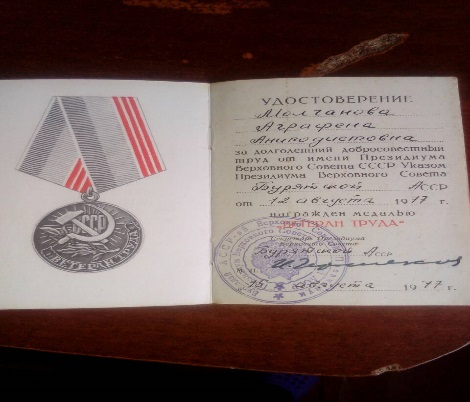 СССР
ВЕТЕРАН ТРУДА
УДОСТОВЕРЕНИЕ
Молчанова
Аграфена
за долголетний добросовестный
труд от имени Президиума
Верховного Совета СССР Указом
Президиума Верховного Совета
Бурятской АССР
от 12 августа 1977 г.
награжден медалью
"ВЕТЕРАН ТРУДА"
Секретарь Президиума
Верховного Совета
Бурятской АССР
15 августа 1977 г.